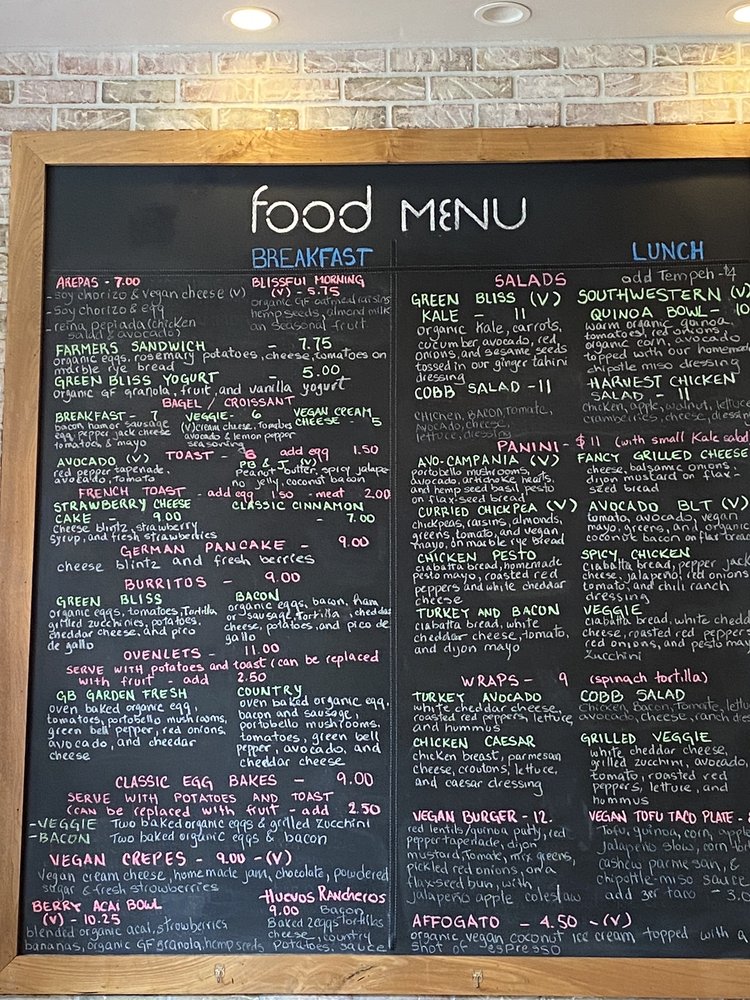 food MENU
BREAKFAST
AREPAS - 7.00
- soy chorizo & vegan cheese (v)
- soy chorizo & egg
- reina pepiada (chicken
salad & avocado)
BLISSFUL MORNING
(V) - 5.75
organic GF oatmeal, raisins
hemp seeds, almond milk
an seasonal fruit
FARMERS SANDWICH - 7.75
organic eggs, rosemary potatoes, cheese, tomatoes on
marble rye bread
GREEN BLISS YOGURT - 5.00
organic GF granola, fruit, and vanilla yogurt
BAGEL / CROISSANT
BREAKFAST - 7
bacon ham or sausage
egg, pepper jack cheese
tomatoes & mayo
VEGGIE - 6
(v) cream cheese, Tomatoes
avocado & lemon pepper
seasoning
VEGAN CREAM
CHEESE - 5
TOAST - 8 add egg 1.50
AVOCADO (V)
red pepper tapenade,
avocado, tomato
PB & J (V)
Peanut butter, spicy jalape
no jelly, coconut bacon
FRENCH TOAST - add egg 1.50 - meat 2.00
STRAWBERRY CHEESE
CAKE - 9.00
cheese blintz, strawberry
syrup, and fresh strawberries
CLASSIC CINNAMON
- 7.00
GERMAN PANCAKE - 9.00
cheese blintz and fresh berries
BURRITOS - 9.00
GREEN BLISS
organic eggs, tomatoes, Tortilla
grilled zucchinies, potatoes,
cheddar cheese, and pico
de gallo
BACON
organic eggs, bacon, ham
or sausage, tortilla, cheddar
cheese, potatoes, and pico de
gallo
OVENLETS - 11.00
SERVE WITH potatoes and toast (can be replaced
with fruit - add 2.50
GB GARDEN FRESH
oven baked organic egg,
tomatoes, portobello mushrooms,
green bell pepper, red onions,
avocado, and chedar
cheese
COUNTRY
oven baked organic egg,
bacon and sausage,
portobello mushrooms,
tomatoes, green bell
pepper, avocado, and
cheddar cheese
CLASSIC EGG BAKES - 9.00
SERVE WITH POTATOES AND TOAST
(can be replaced with fruit - add 2.50
- VEGGIE Two baked organic eggs & grilled zucchini
- BACON Two baked organic eggs & bacon
VEGAN CREPES - 9.00 - (V)
Vegan cream cheese, homemade jam, chocolate, powdered
sugar & fresh strowberries
BERRY ACAI BOWL
(V) - 10.25
blended organic acai, strowberries
bananas, organic GF granola, hemp seeds
Huevos Rancheros
9.00 Bacon
Baked 2 eggs tortillas
cheese, country
potatoes, sauce
LUNCH
SALADS add Tempeh - $4
GREEN BLISS (V)
KALE - 11
organic kale, carrots,
cucumber, avocado, red
onions, and sesame seeds
tossed in our ginger tahini
dressing
SOUTHWESTERN (V)
QUINOA BOWL - 10
warm organic quinoa
tomatoes, red onions
organic corn, avocado
topped with our homemad
chipotle miso dressing
COBB SALAD - 11
chicken, bacon, tomato,
Avocado, cheese,
lettuce, dressing
HARVEST CHICKEN
SALAD - 11
chicken, apple, walnut, lettuce
cramberries, cheese, dressin
PANINI - $11 (with small Kale salad
AVO-CAMPANIA (V)
portobello mushrooms,
avocado, artichoke hearts,
and hemp seed basil pesto
on flax-seed bread
FANCY GRILLED CHEESE
cheese, balsamic onions,
dijon mustard on flax-
seed bread
CURRIED CHICKPEA (V)
chickpeas, raisins, almonds,
greens, tomato, and vegan
mayo, on marble rye bread
AVOCADO BLT (V)
tomato, avocado, vegan
mayo, greens, and organic
coconut bacon on flax bread
CHICKEN PESTO
ciabatta bread, homemade
pesto mayo, roasted red
peppers and white cheddar
cheese
SPICY CHICKEN
ciabatta bread, pepper jack
cheese, jalapeño, red onions
tomato, and chili ranch
dressing
TURKEY AND BACON
ciabatta bread, white
cheddar cheese, tomato,
and dijon mayo
VEGGIE
ciabatta bread, white chedd
cheese, roasted red pepper
red onions, and pesto mayo
Zucchini
WRAPS - 9 (spinach tortilla)
TURKEY AVOCADO
white cheddar cheese,
roasted red peppers, lettuce,
and hummus
COBB SALAD
Chicken, Bacon, Tomato, lettuc
avocado, cheese, ranch dres
CHICKEN CAESAR
chicken breast, parmesan
cheese, croutons, lettuce,
and caesar dressing
GRILLED VEGGIE
white cheddar cheese,
grilled zucchini, avocado,
tomato, roasted red
peppers, lettuce, and
hummus
VEGAN BURGER - 12.
red lentils/quinoa patty, red
pepper tapenade, dijon
mustard, Tomato, mix greens,
pickled red onions, on a
flaxseed bun, with
jalapeño apple coleslaw
VEGAN TOFU TACO PLATE -
Tofu, quinoa, corn, apple
Jalapeño slow, corn tort
cashew parmesan, &
chipotle-miso sauce
add 3er taco - 3.
AFFOGATO - 4.50 - (V)
organic, vegan coconut ice cream topped with a
shot of espresso